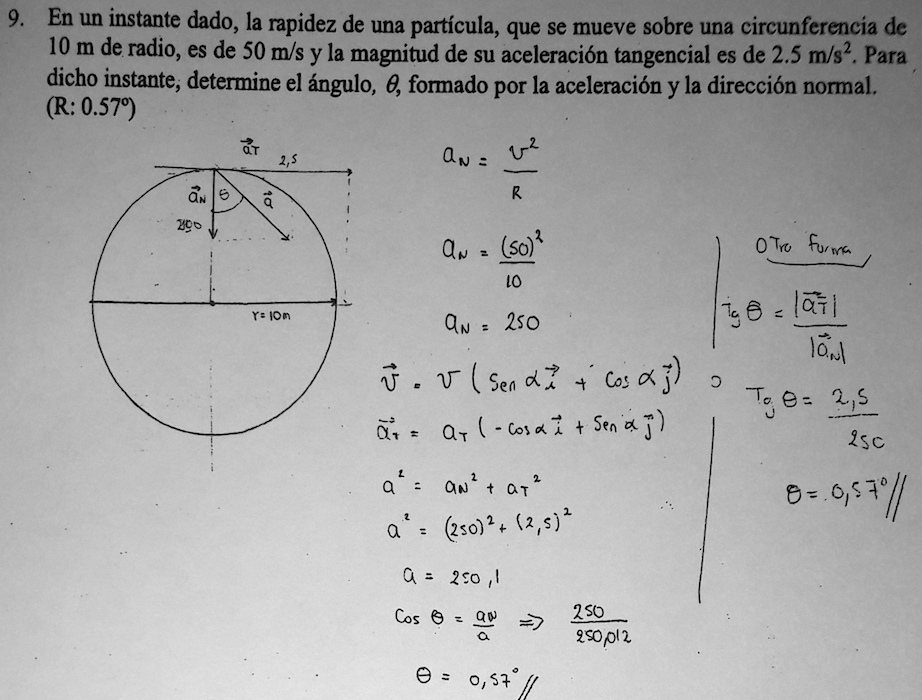 9. En un instante dado, la rapidez de una partícula, que se mueve sobre una circunferencia de
10 m de radio, es de 50 m/s y la magnitud de su aceleración tangencial es de 2.5 m/s². Para
dicho instante, determine el ángulo, θ, formado por la aceleración y la dirección normal.
(R: 0.57º)
a⃗T
2,5
a⃗N θ a⃗
r = 10m
aN = v² / R
aN = (50)² / 10
aN = 250
v⃗ = v (Sen α i⃗ + Cos α j⃗)
a⃗T = aT (-Cos α i⃗ + Sen α j⃗)
a² = aN² + aT²
a² = (250)² + (2,5)²
a = 250,1
Cos θ = aN / a ⇒ 250 / 250,012
θ = 0,57° //
Otra forma
Tg θ = |a⃗T| / |a⃗N|
Tg θ = 2,5 / 250
θ = 0,57° //